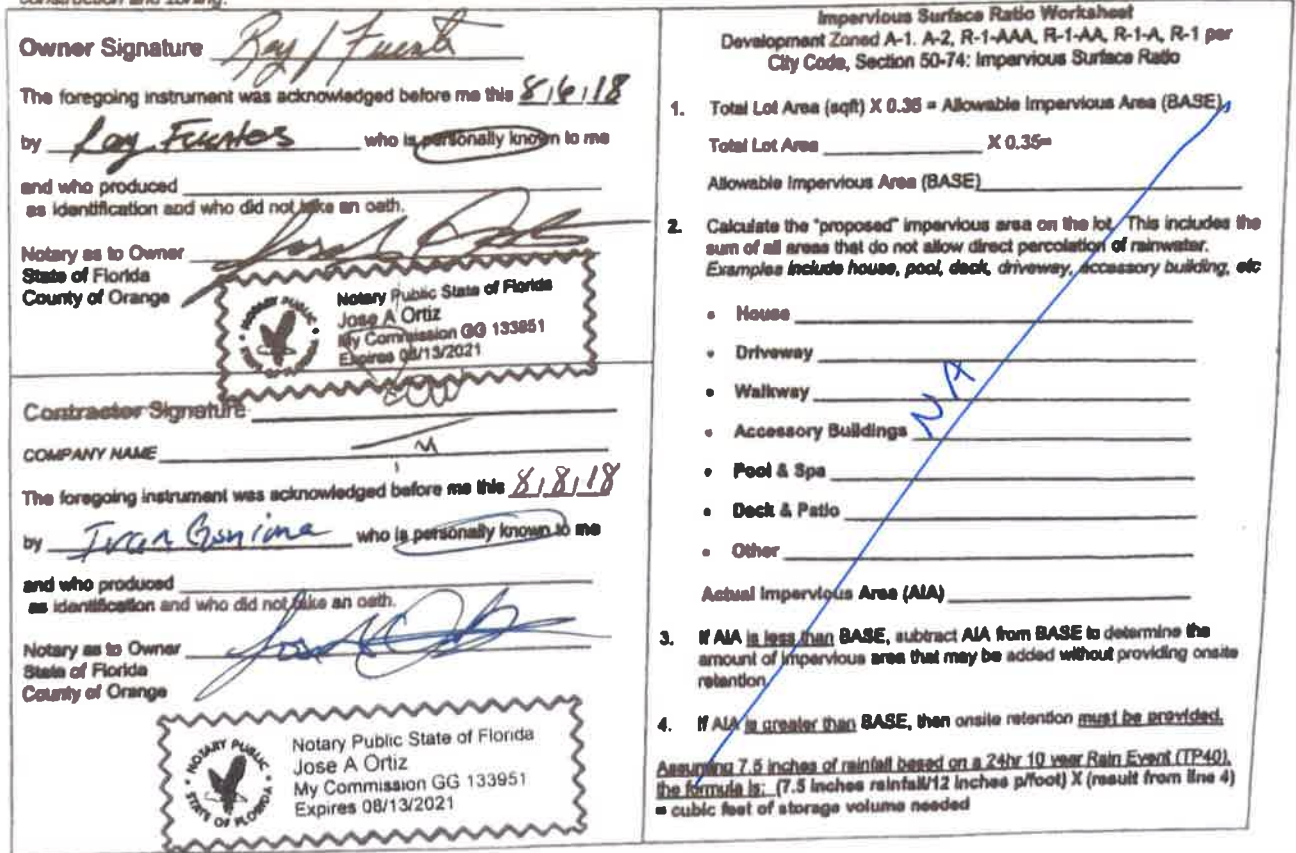 construction and zoning.
Owner Signature Ray / Fuent
The foregoing instrument was acknowledged before me this 8/6/18
by Ray Fuentes who is personally known to me
and who produced
as identification and who did not take an oath.
Notary as to Owner
State of Florida
County of Orange
NOTARY PUBLIC
STATE OF FLORIDA
Notary Public State of Florida
Jose A Ortiz
My Commission GG 133951
Expires 08/13/2021
Contractor Signature
COMPANY NAME
The foregoing instrument was acknowledged before me this 8/8/18
by Ivan who is personally known to me
and who produced
as identification and who did not take an oath.
Notary as to Owner
State of Florida
County of Orange
NOTARY PUBLIC
STATE OF FLORIDA
Notary Public State of Florida
Jose A Ortiz
My Commission GG 133951
Expires 08/13/2021
Impervious Surface Ratio Worksheet
Development Zoned A-1. A-2, R-1-AAA, R-1-AA, R-1-A, R-1 per
City Code, Section 50-74: Impervious Surface Ratio
1. Total Lot Area (sqft) X 0.35 = Allowable Impervious Area (BASE)
Total Lot Area X 0.35=
Allowable Impervious Area (BASE)
2. Calculate the "proposed" impervious area on the lot. This includes the
sum of all areas that do not allow direct percolation of rainwater.
Examples include house, pool, deck, driveway, accessory building, etc
• House
• Driveway
• Walkway
• Accessory Buildings
N/A
• Pool & Spa
• Deck & Patio
• Other
Actual Impervious Area (AIA)
3. If AIA is less than BASE, subtract AIA from BASE to determine the
amount of impervious area that may be added without providing onsite
retention
4. If AIA is greater than BASE, then onsite retention must be provided.
Assuming 7.5 inches of rainfall based on a 24hr 10 year Rain Event (TP40),
the formula is: (7.5 inches rainfall/12 inches p/foot) X (result from line 4)
= cubic feet of storage volume needed